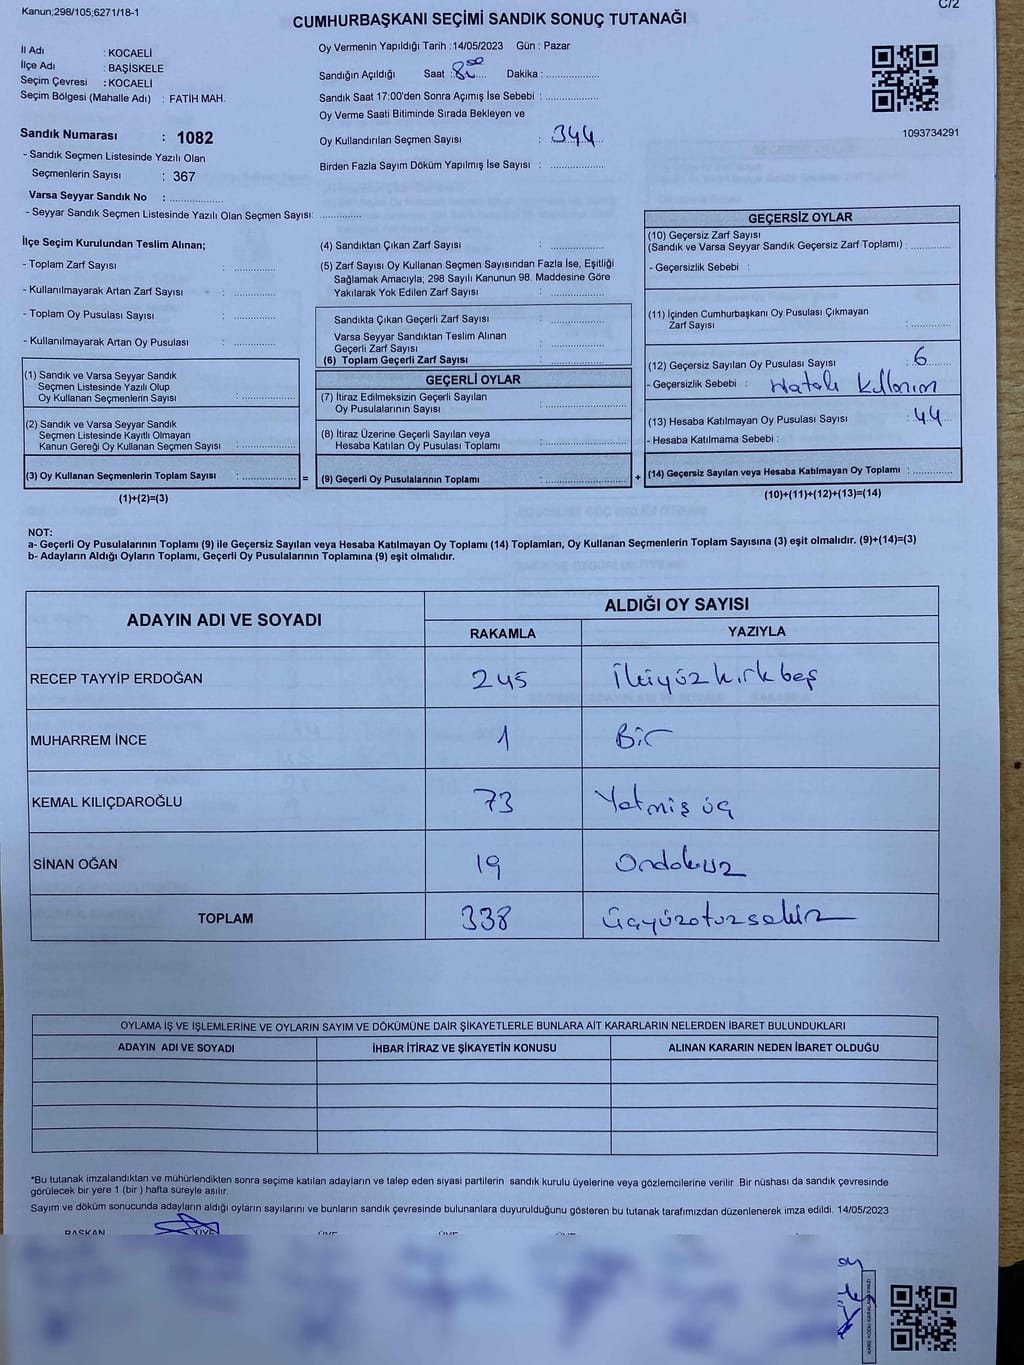 Kanun;298/105;6271/18-1
C/2
CUMHURBAŞKANI SEÇİMİ SANDIK SONUÇ TUTANAĞI
İl Adı : KOCAELİ
İlçe Adı : BAŞİSKELE
Seçim Çevresi : KOCAELİ
Seçim Bölgesi (Mahalle Adı) : FATİH MAH.
Sandık Numarası : 1082
- Sandık Seçmen Listesinde Yazılı Olan
Seçmenlerin Sayısı : 367
Varsa Seyyar Sandık No : ..............
- Seyyar Sandık Seçmen Listesinde Yazılı Olan Seçmen Sayısı: ..............
Oy Vermenin Yapıldığı Tarih :14/05/2023 Gün : Pazar
Sandığın Açıldığı Saat : 8:00 Dakika : ..............
Sandık Saat 17:00'den Sonra Açımış İse Sebebi : ..............
Oy Verme Saati Bitiminde Sırada Bekleyen ve
Oy Kullandırılan Seçmen Sayısı : 344
Birden Fazla Sayım Döküm Yapılmış İse Sayısı : ..............
1093734291
İlçe Seçim Kurulundan Teslim Alınan;
- Toplam Zarf Sayısı : ..............
- Kullanılmayarak Artan Zarf Sayısı : ..............
- Toplam Oy Pusulası Sayısı : ..............
- Kullanılmayarak Artan Oy Pusulası : ..............
(1) Sandık ve Varsa Seyyar Sandık
Seçmen Listesinde Yazılı Olup
Oy Kullanan Seçmenlerin Sayısı : ..............
(2) Sandık ve Varsa Seyyar Sandık
Seçmen Listesinde Kayıtlı Olmayan
Kanun Gereği Oy Kullanan Seçmen Sayısı : ..............
(3) Oy Kullanan Seçmenlerin Toplam Sayısı : .............. =
(1)+(2)=(3)
(4) Sandıktan Çıkan Zarf Sayısı : ..............
(5) Zarf Sayısı Oy Kullanan Seçmen Sayısından Fazla İse, Eşitliği
Sağlamak Amacıyla; 298 Sayılı Kanunun 98. Maddesine Göre
Yakılarak Yok Edilen Zarf Sayısı : ..............
Sandıkta Çıkan Geçerli Zarf Sayısı : ..............
Varsa Seyyar Sandıktan Teslim Alınan
Geçerli Zarf Sayısı : ..............
(6) Toplam Geçerli Zarf Sayısı : ..............
GEÇERLİ OYLAR
(7) İtiraz Edilmeksizin Geçerli Sayılan
Oy Pusulalarının Sayısı : ..............
(8) İtiraz Üzerine Geçerli Sayılan veya
Hesaba Katılan Oy Pusulası Toplamı : ..............
(9) Geçerli Oy Pusulalarının Toplamı : .............. +
GEÇERSİZ OYLAR
(10) Geçersiz Zarf Sayısı
(Sandık ve Varsa Seyyar Sandık Geçersiz Zarf Toplamı) : ..............
- Geçersizlik Sebebi :
(11) İçinden Cumhurbaşkanı Oy Pusulası Çıkmayan
Zarf Sayısı : ..............
(12) Geçersiz Sayılan Oy Pusulası Sayısı : 6
- Geçersizlik Sebebi : Hatalı Kullanım
(13) Hesaba Katılmayan Oy Pusulası Sayısı : 44
- Hesaba Katılmama Sebebi :
(14) Geçersiz Sayılan veya Hesaba Katılmayan Oy Toplamı : ..............
(10)+(11)+(12)+(13)=(14)
NOT:
a- Geçerli Oy Pusulalarının Toplamı (9) ile Geçersiz Sayılan veya Hesaba Katılmayan Oy Toplamı (14) Toplamları, Oy Kullanan Seçmenlerin Toplam Sayısına (3) eşit olmalıdır. (9)+(14)=(3)
b- Adayların Aldığı Oyların Toplamı, Geçerli Oy Pusulalarının Toplamına (9) eşit olmalıdır.
ADAYIN ADI VE SOYADI ALDIĞI OY SAYISI
RAKAMLA YAZIYLA
RECEP TAYYİP ERDOĞAN 245 İkiyüzkırkbeş
MUHARREM İNCE 1 Bir
KEMAL KILIÇDAROĞLU 73 Yetmiş üç
SİNAN OĞAN 19 Ondokuz
TOPLAM 338 Üçyüzotuzsekiz
OYLAMA İŞ VE İŞLEMLERİNE VE OYLARIN SAYIM VE DÖKÜMÜNE DAİR ŞİKAYETLERLE BUNLARA AİT KARARLARIN NELERDEN İBARET BULUNDUKLARI
ADAYIN ADI VE SOYADI İHBAR İTİRAZ VE ŞİKAYETİN KONUSU ALINAN KARARIN NEDEN İBARET OLDUĞU
*Bu tutanak imzalandıktan ve mühürlendikten sonra seçime katılan adayların ve talep eden siyasi partilerin sandık kurulu üyelerine veya gözlemcilerine verilir .Bir nüshası da sandık çevresinde
görülecek bir yere 1 (bir ) hafta süreyle asılır.
Sayım ve döküm sonucunda adayların aldığı oyların sayılarını ve bunların sandık çevresinde bulunanlara duyurulduğunu gösteren bu tutanak tarafımızdan düzenlenerek imza edildi. 14/05/2023
BAŞKAN ÜYE ÜYE ÜYE ÜYE